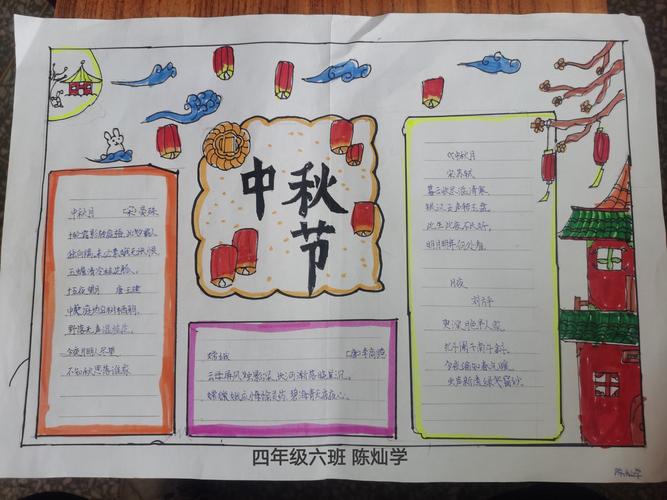 中秋节
中秋月 (宋)晏殊
独向隅,未必素娥无怅恨,
玉蟾清冷桂花孤。
十五夜 月 唐王建
中庭地白树栖鸦,
冷露无声湿桂花。
今夜月明人尽望
不知秋思落谁家
嫦娥 (唐)李商隐
云母屏风烛影深,长河渐落晓星沉。
嫦娥 应悔偷灵药,碧海青天夜夜心。
《中秋月》
宋苏轼
暮云收尽溢清寒
银汉无声转玉盘。
此生此夜不长好,
明月明年何处看。
月夜
刘方平
更深月色半人家,
北斗阑干南斗斜。
今夜偏知春气暖,
虫声新透绿窗纱
四年级六班 陈灿学
陈灿学